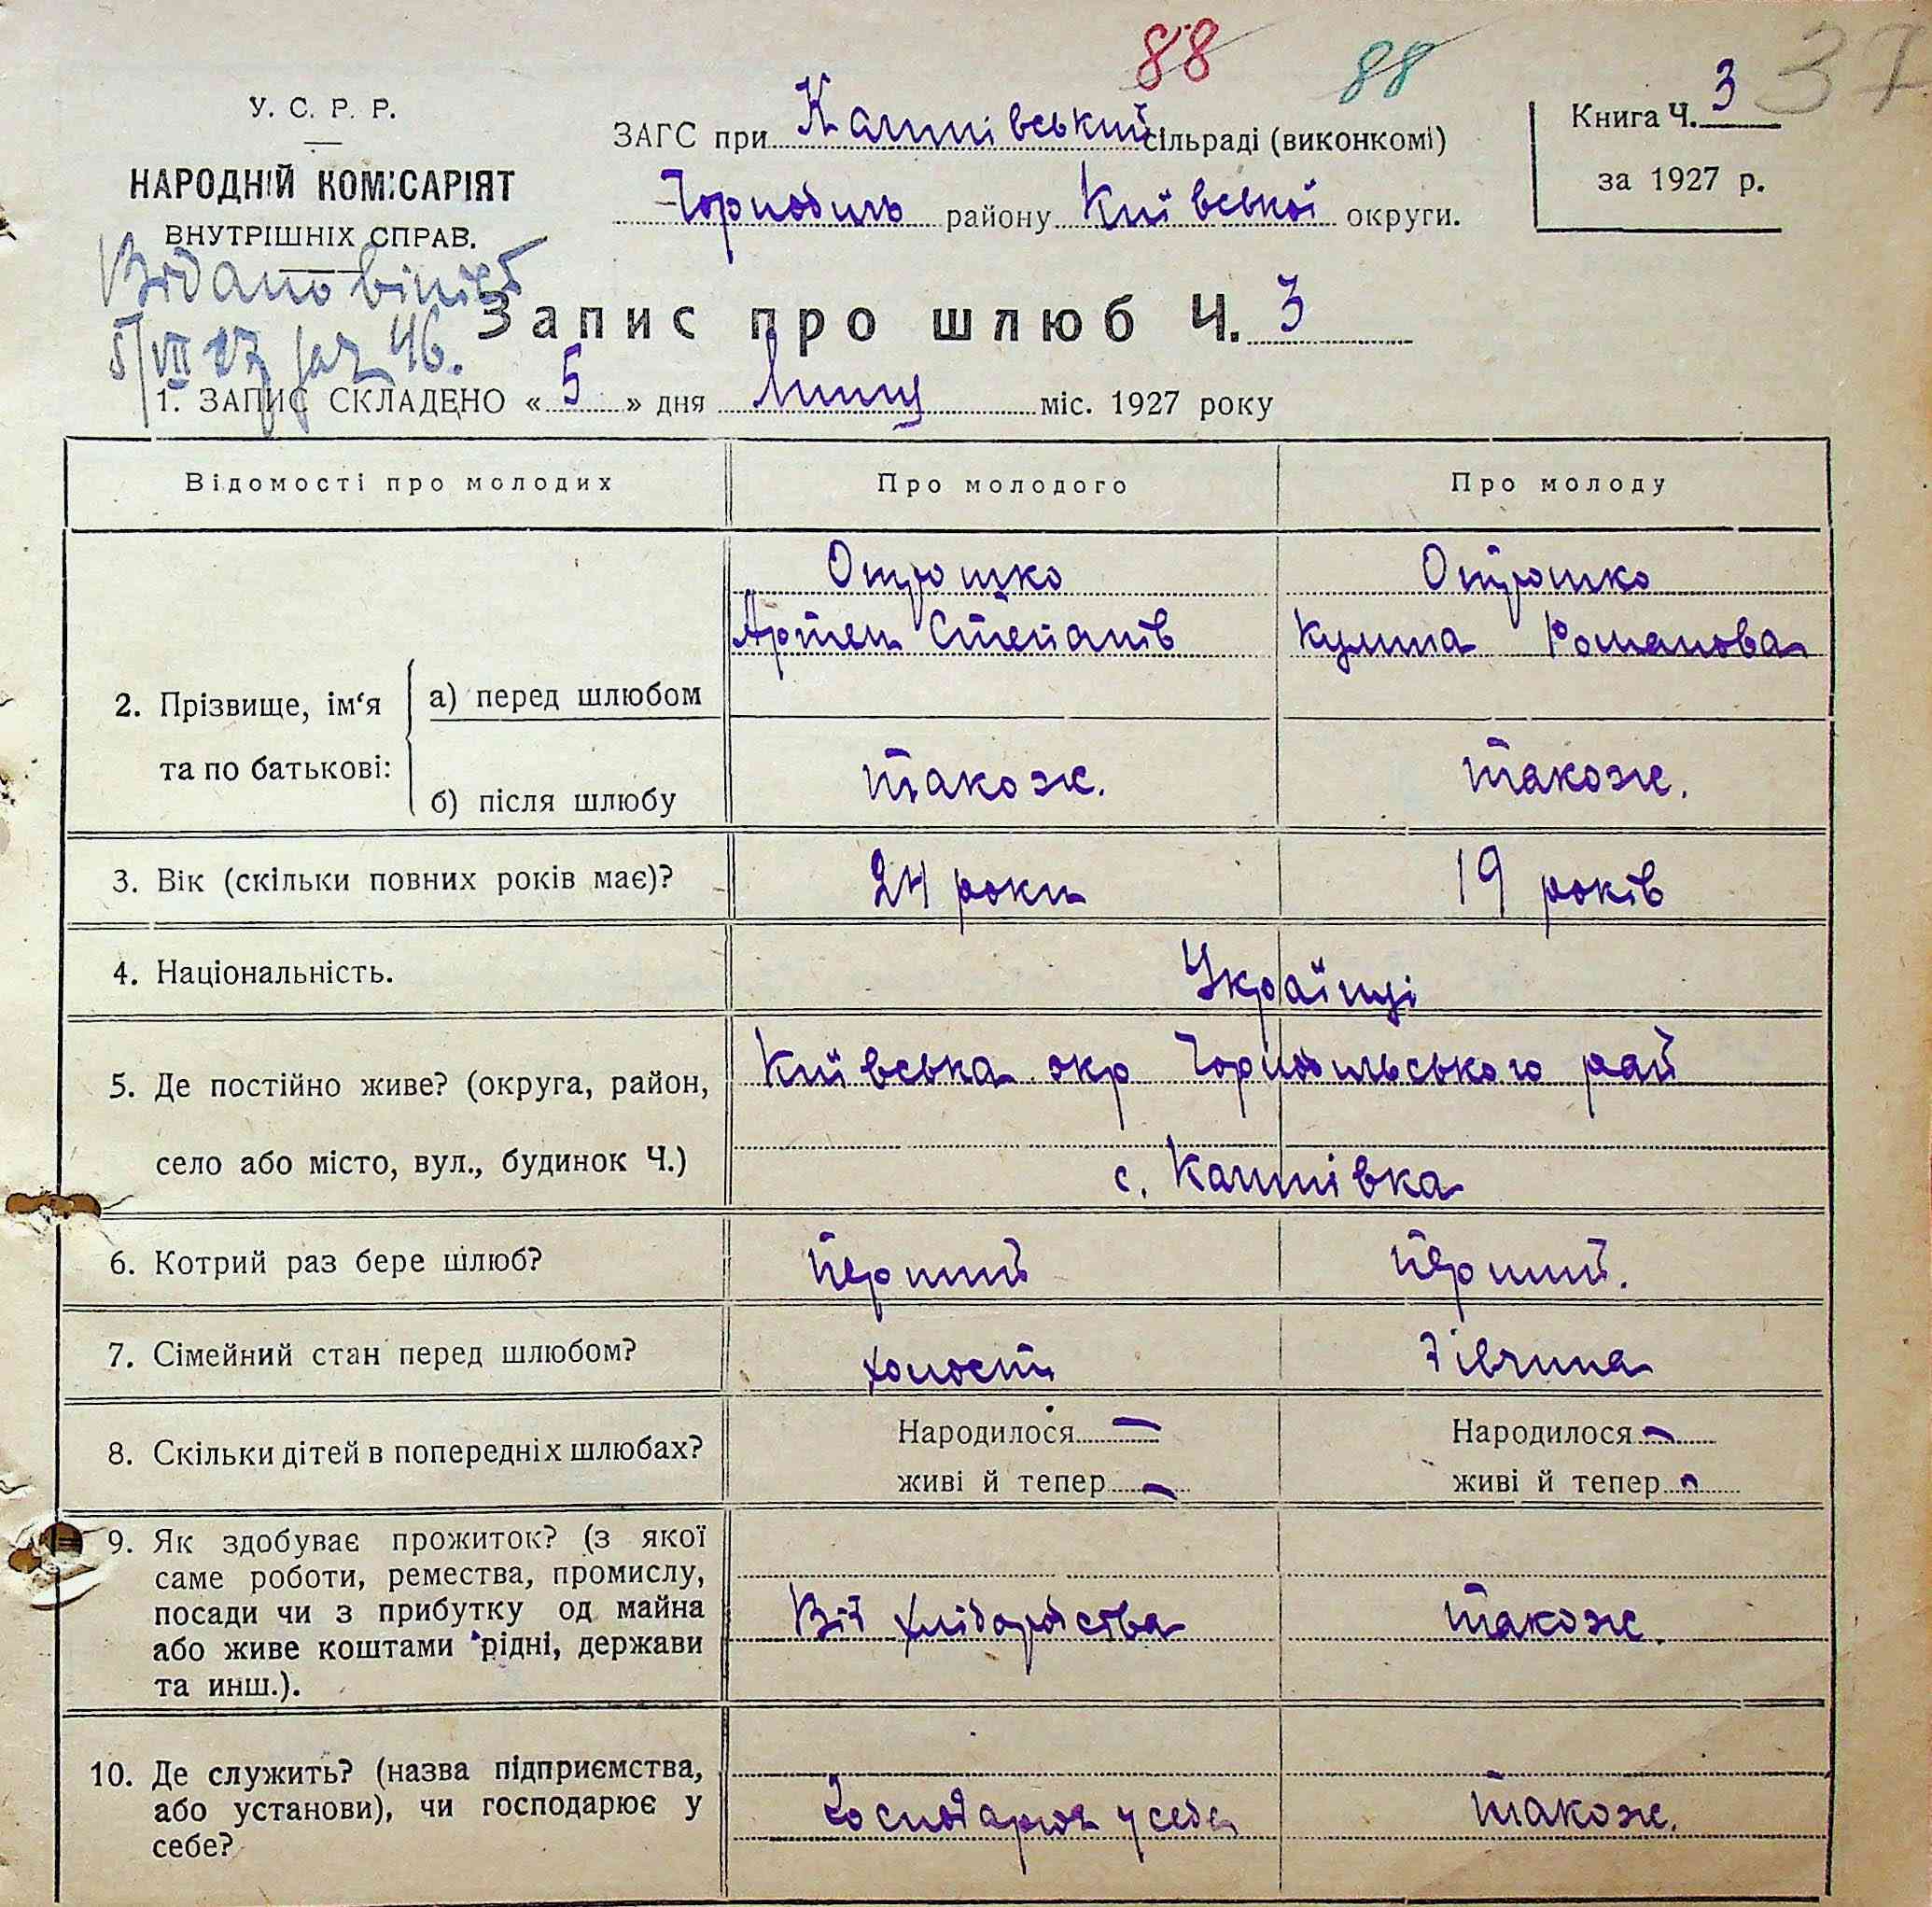 88 88
37
У. С. Р. Р.
НАРОДНІЙ КОМІСАРІЯТ
ВНУТРІШНІХ СПРАВ.
ЗАГС при сільраді (виконкомі)
Чорнобиль району Київської округи.
Книга Ч. 3
за 1927 р.
Видано
5/VII 27 46.
Запис про шлюб Ч. 3
1. ЗАПИС СКЛАДЕНО « 5 » дня Липця міс. 1927 року
Відомості про молодих Про молодого Про молоду
2. Прізвище, ім‘я та по батькові:
а) перед шлюбом
Отрошко Отрошко
Артем Степанів Кулина Романова
б) після шлюбу
також. також.
3. Вік (скільки повних років має)? 24 роки 19 років
4. Національність. Українці
5. Де постійно живе? (округа, район, Київська окр Чорнобильського рай
село або місто, вул., будинок Ч.) с.
6. Котрий раз бере шлюб? перший перший.
7. Сімейний стан перед шлюбом? холост дівчина
8. Скільки дітей в попередніх шлюбах? Народилося — Народилося —
живі й тепер — живі й тепер —
9. Як здобуває прожиток? (з якої
саме роботи, ремества, промислу,
посади чи з прибутку од майна
або живе коштами рідні, держави
та инш.).
Від хліборобства також.
10. Де служить? (назва підприємства,
або установи), чи господарює у
себе?
Господарює у себе також.